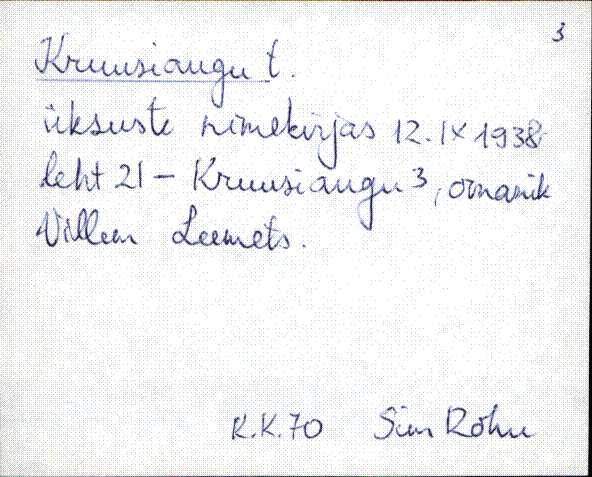 3
Kruusiaugu t.
üksuste nimekirjas 12.IX 1938
leht 21 – Kruusiaugu 3, omanik
Villem Leemets.
K.K.70 Siim Rõhu